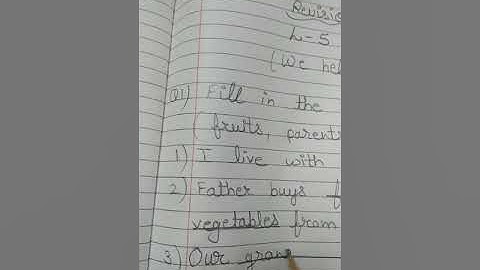 Revisio
L-5
(We hel
Q1) Fill in the
( fruits, parent
1) I live with
2) Father buys f
vegetables from
3) Our gran